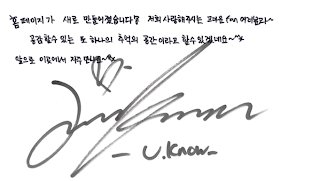 홈페이지가 새로 만들어졌습니다
저희 사랑해주시는 고마운 fan 여러분과~
공유할수 있는 또 하나의 추억의 공간이라고 할수 있겠네요~^^*
앞으로 이곳에서 자주 만나요~^^*
- U.Know -